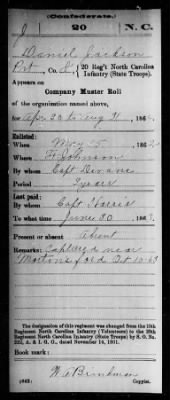 (Confederate.)
J 20 N. C.
Daniel Jackson
Pvt, Co. 20 Reg't North Carolina
Infantry (State Troops).
Appears on
Company Muster Roll
of the organization named above,
for Apr 30 to Aug 31, 186
Enlisted:
When May 5, 186
Where Ft Johnson
By whom Capt
Period 3 years
Last paid:
By whom Capt Harris
To what time June 30, 186
Present or absent Absent
Remarks: Captured near
Mortons ford Oct 10-63
The designation of this regiment was changed from the 10th
Regiment North Carolina Infantry (Volunteers) to the 20th
Regiment North Carolina Infantry (State Troops) by S. O. No.
222, A. & I. G. O., dated November 14, 1861.
Book mark:
(642)
Copyist.